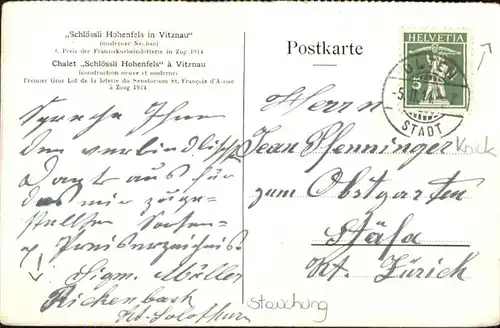 „Schlössli Hohenfels in Vitznau“
(moderner Neubau)
1. Preis der Franziskusheimlotterie in Zug 1914
Chalet „Schlössli Hohenfels“ à Vitznau
(construction neuve et moderne)
Premier Gros Lot de la loterie du Sanatorium St. François d'Assise
à Zoug 1914
Postkarte
HELVETIA
5
OLTEN
STADT
Spreche Ihnen
den verbindlichsten
Dank aus für
das mir zuge-
stellten Sorten-
& Preisverzeichnis.
Sigm. Müller
Rickenbach
Kt. Solothurn
Herrn
Jean Pfenninger
zum Obstgarten
Stäfa
Kt. Zürich
Knick
Stauchung